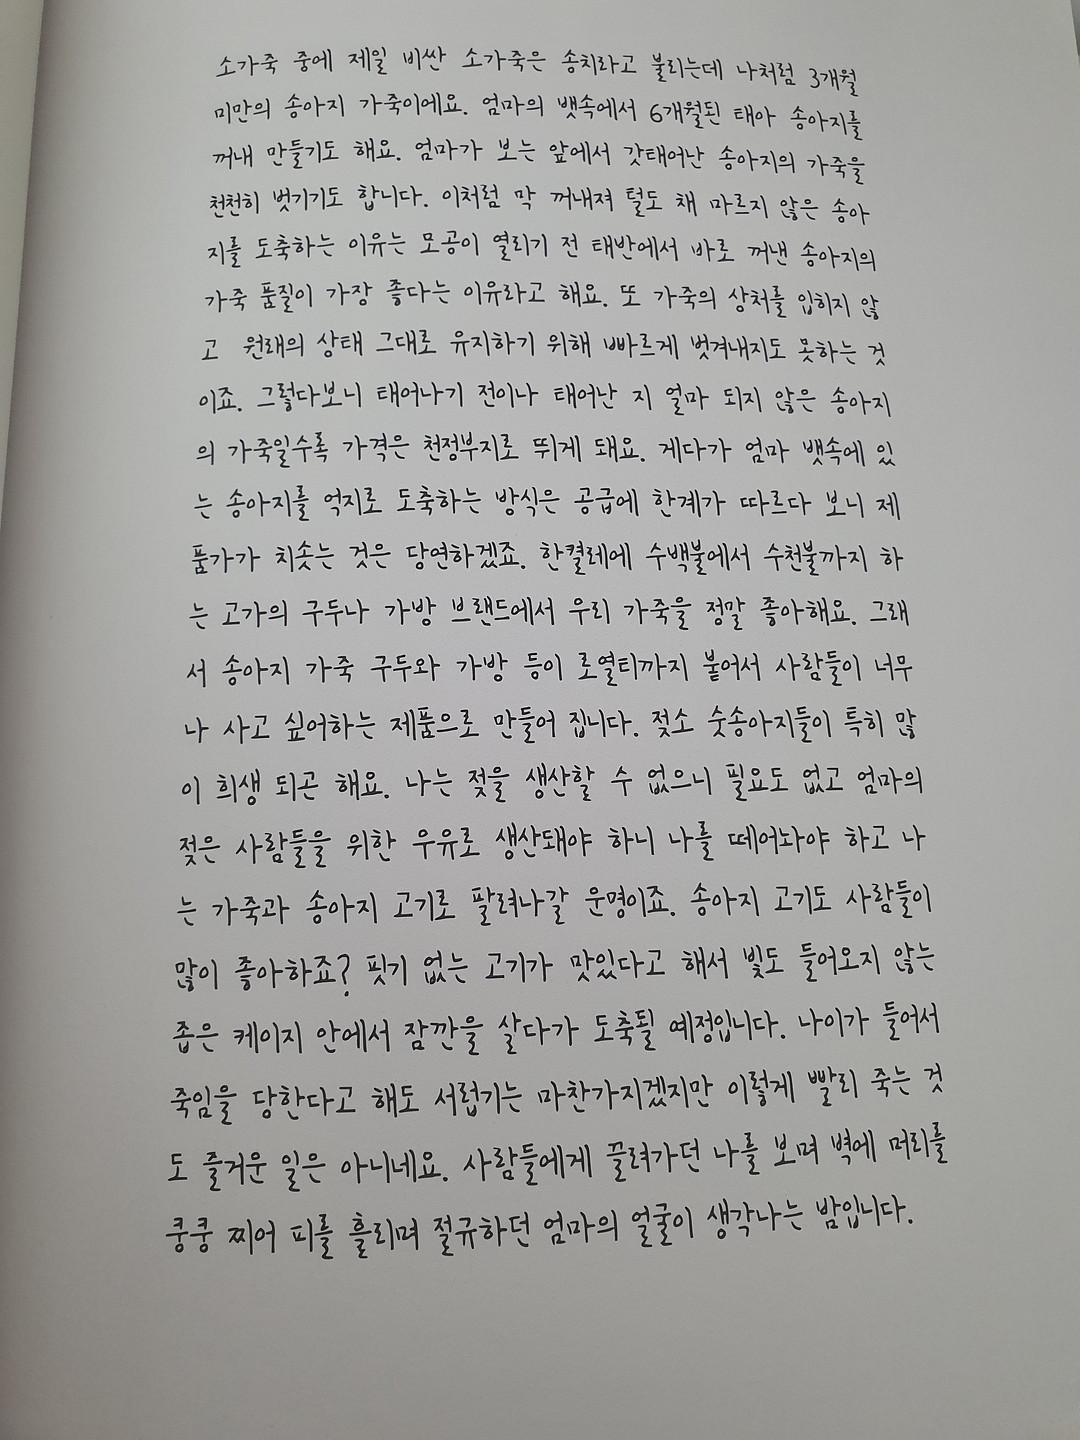 소가죽 중에 제일 비싼 소가죽은 송치라고 불리는데 나처럼 3개월
미만의 송아지 가죽이에요. 엄마의 뱃속에서 6개월된 태아 송아지를
꺼내 만들기도 해요. 엄마가 보는 앞에서 갓태어난 송아지의 가죽을
천천히 벗기기도 합니다. 이처럼 막 꺼내져 털도 채 마르지 않은 송아
지를 도축하는 이유는 모공이 열리기 전 태반에서 바로 꺼낸 송아지의
가죽 품질이 가장 좋다는 이유라고 해요. 또 가죽의 상처를 입히지 않
고 원래의 상태 그대로 유지하기 위해 빠르게 벗겨내지도 못하는 것
이죠. 그렇다보니 태어나기 전이나 태어난 지 얼마 되지 않은 송아지
의 가죽일수록 가격은 천정부지로 뛰게 돼요. 게다가 엄마 뱃속에 있
는 송아지를 억지로 도축하는 방식은 공급에 한계가 따르다 보니 제
품가가 치솟는 것은 당연하겠죠. 한켤레에 수백불에서 수천불까지 하
는 고가의 구두나 가방 브랜드에서 우리 가죽을 정말 좋아해요. 그래
서 송아지 가죽 구두와 가방 등이 로열티까지 붙어서 사람들이 너무
나 사고 싶어하는 제품으로 만들어 집니다. 젖소 숫송아지들이 특히 많
이 희생 되곤 해요. 나는 젖을 생산할 수 없으니 필요도 없고 엄마의
젖은 사람들을 위한 우유로 생산돼야 하니 나를 떼어놔야 하고 나
는 가죽과 송아지 고기로 팔려나갈 운명이죠. 송아지 고기도 사람들이
많이 좋아하죠? 핏기 없는 고기가 맛있다고 해서 빛도 들어오지 않는
좁은 케이지 안에서 잠깐을 살다가 도축될 예정입니다. 나이가 들어서
죽임을 당한다고 해도 서럽기는 마찬가지겠지만 이렇게 빨리 죽는 것
도 즐거운 일은 아니네요. 사람들에게 끌려가던 나를 보며 벽에 머리를
쿵쿵 찌어 피를 흘리며 절규하던 엄마의 얼굴이 생각나는 밤입니다.